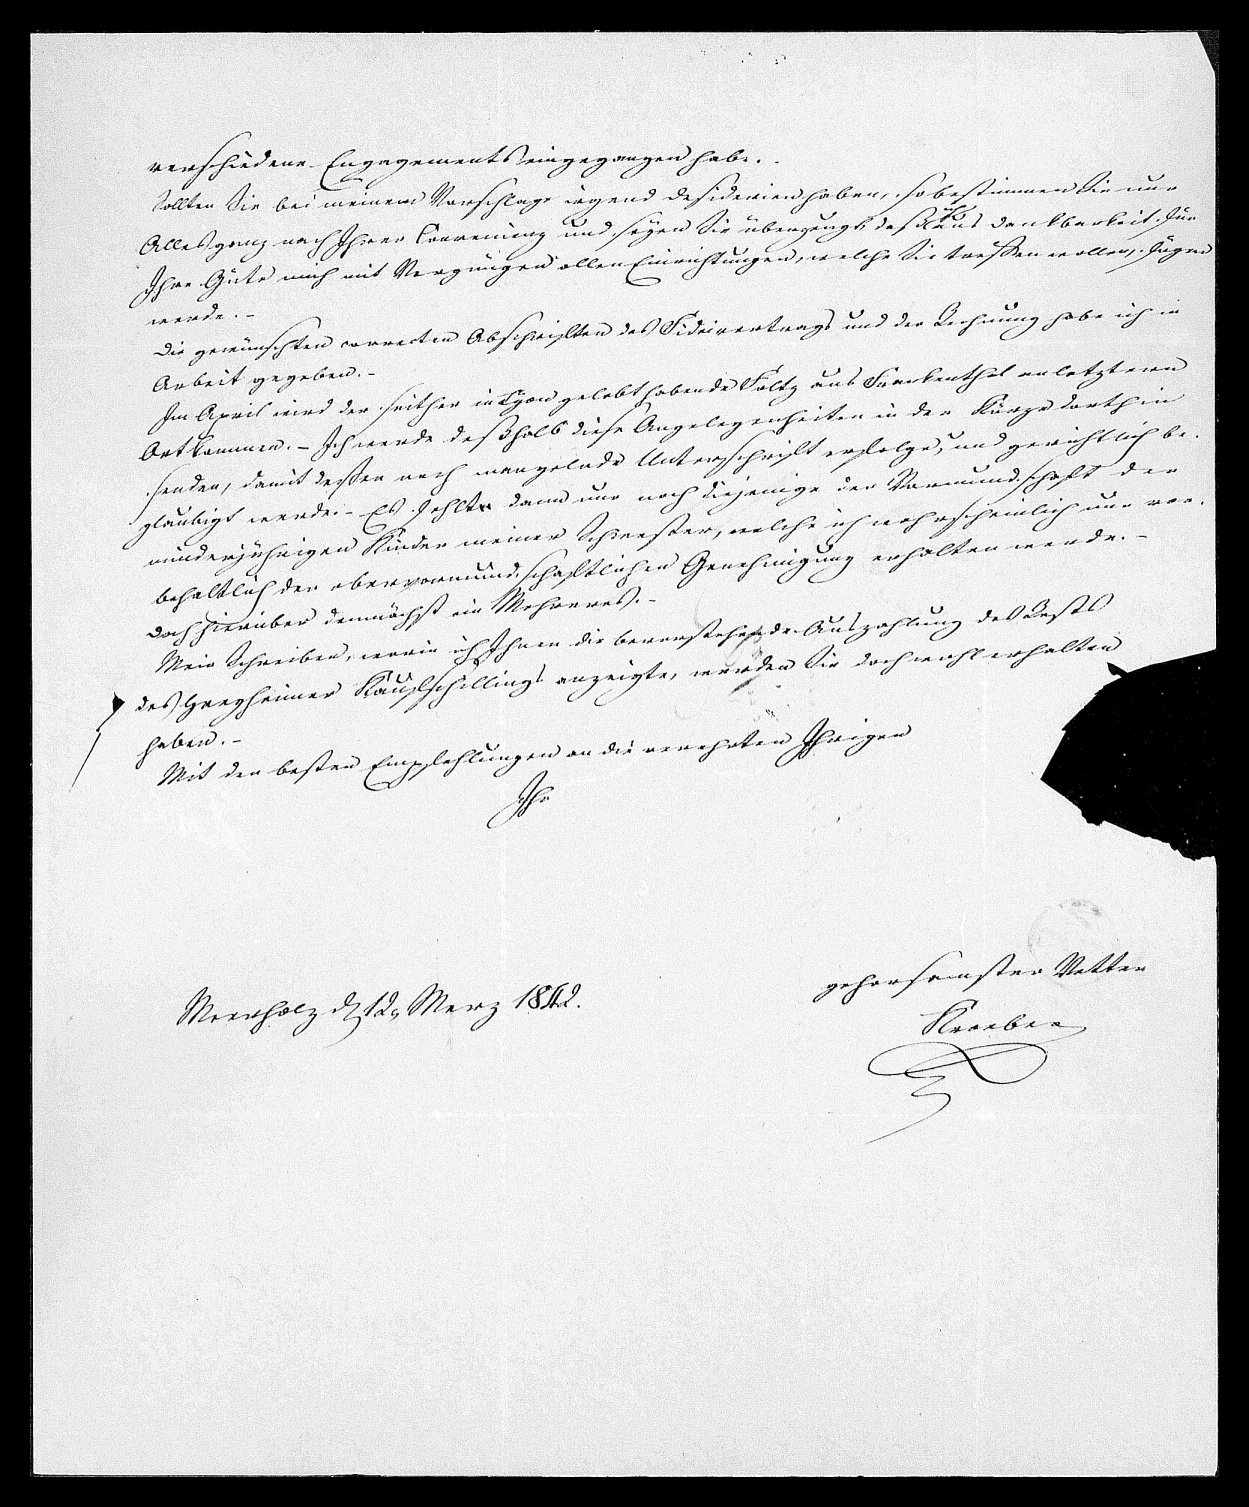 verschiedene Engagements eingegangen habe.
Sollten Sie bei meinem Vorschlage irgend desiderien haben, so bestimmen Sie nur
Alles ganz nach Ihrer Convenienz und seyen Sie überzeugt daß ich aus dankbarkeit für
Ihre Güte mich mit Vergnügen allen Einrichtungen, welche Sie treffen wollen, fügen
werde. -
Die gewünschten correcten Abschriften des und der Rechnung habe ich in
Arbeit gegeben. -
Im April wird der seither in Lyon gelebt habende Foltz aus Frankenthal an letztern
Ort kommen. - Ich werde deßhalb diese Angelegenheiten in der Kürze dorthin
senden, damit dessen noch mangelnde Unterschrift erfolge, und gerichtlich be-
glaubigt werde. - Es fehlte dann nur noch diejenige der Vormundschaft der
minderjährigen Kinder meiner Schwester, welche ich wahrscheinlich nur vor-
behaltlich der obervormundschaftlichen Genehmigung erhalten werde. -
Doch hierüber demnächst ein Mehreres. -
Mein Schreiben, worin ich Ihnen die bevorstehende Auszahlung des Rests
des Kaufschillings anzeigte, werden Sie doch wohl erhalten
haben. -
Mit den besten Empfehlungen an die verehrten Ihrigen
Ihr
gehorsamster Vetter
Meerholz d 12 Merz 1842.
Kroeber